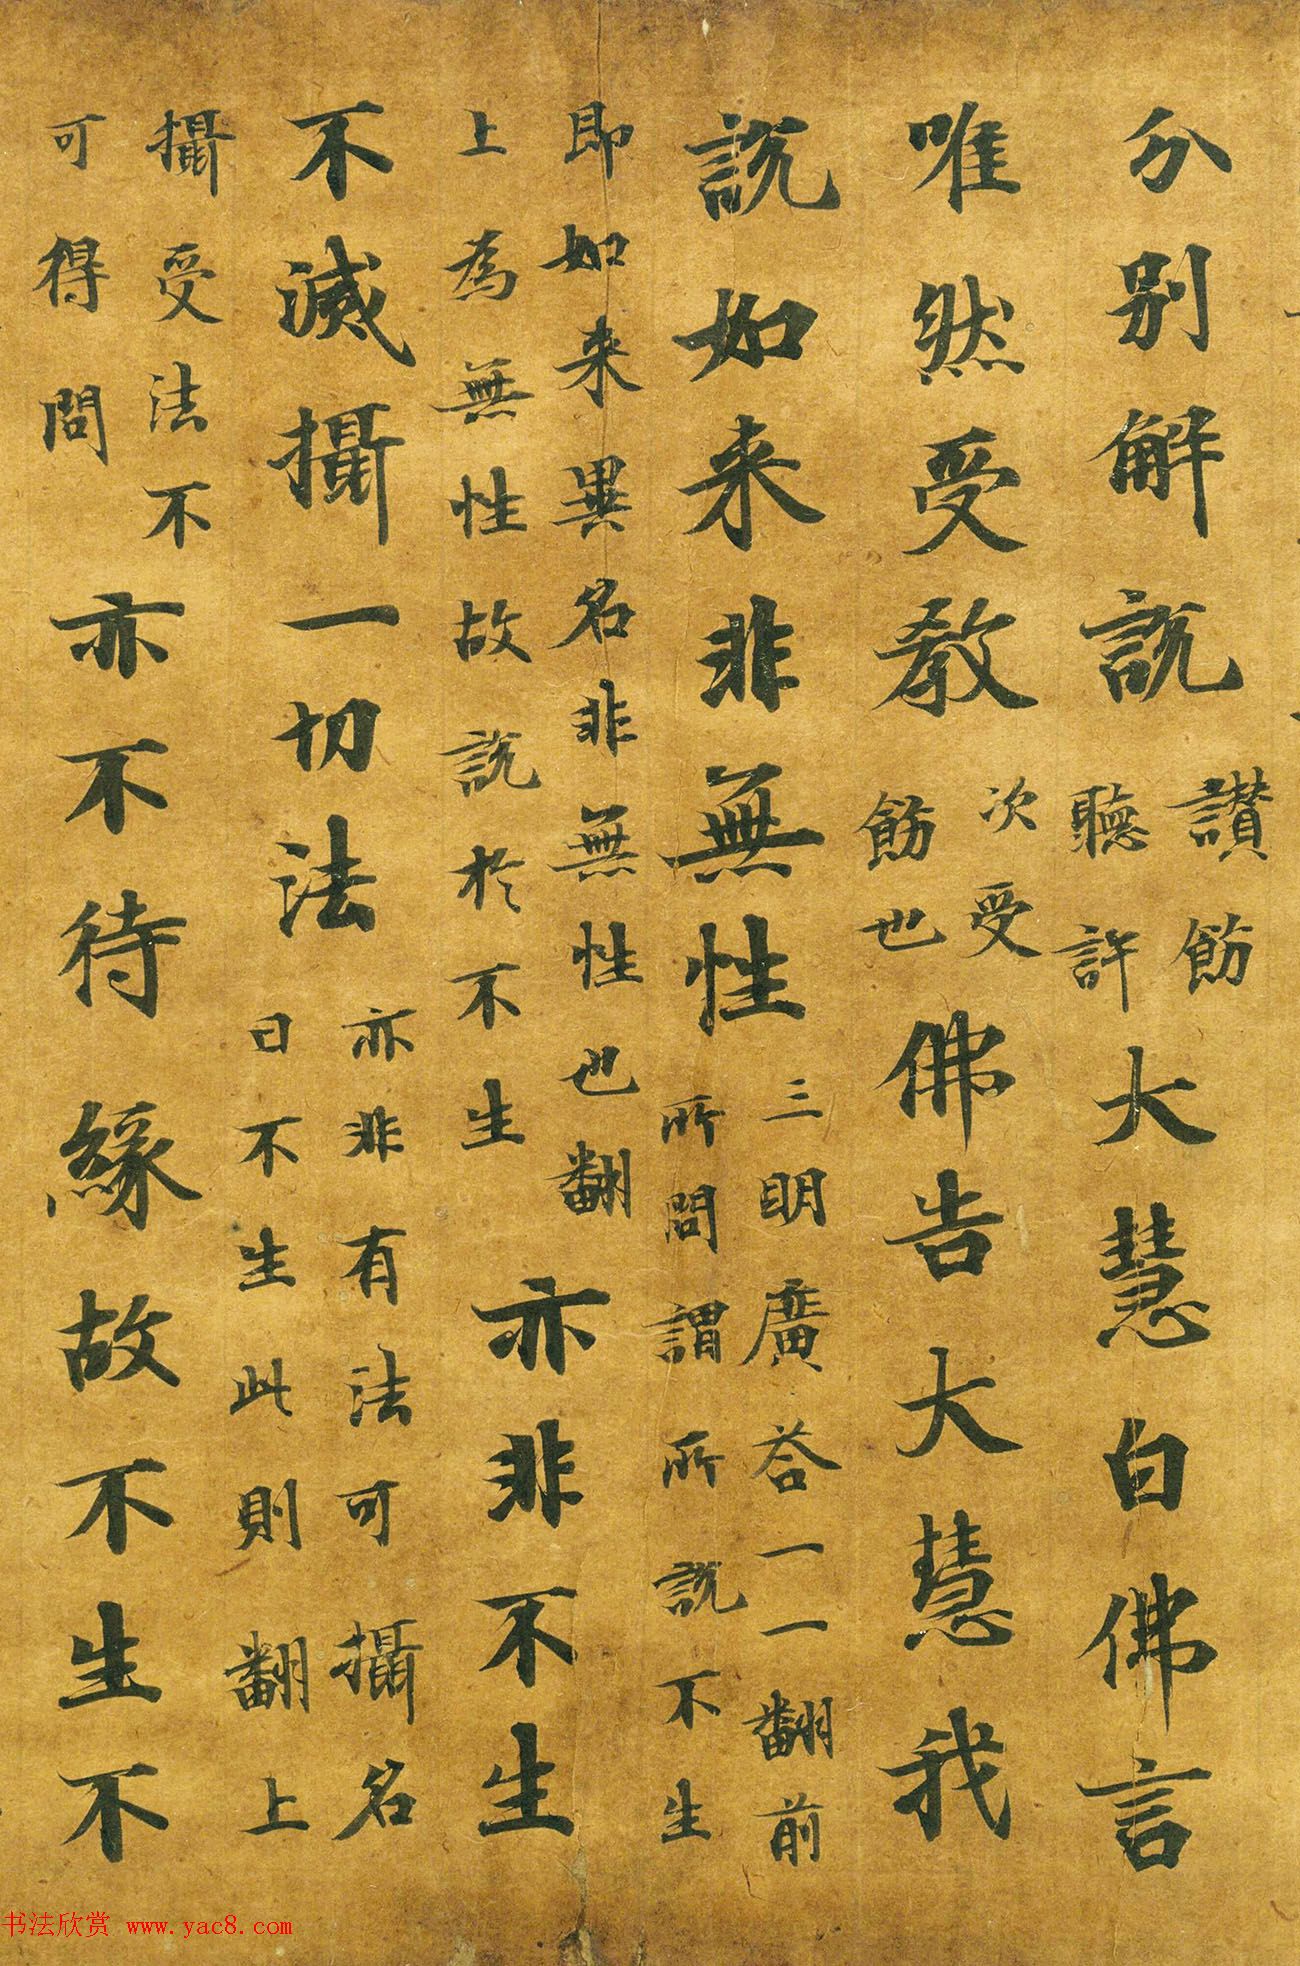 分别解説讃飭聽許大慧白佛言
唯然受教次受飭也佛告大慧我
説如来非無性三明廣荅一一翻前所問謂所説不生
即如来異名非無性也翻上為無性故説於不生亦非不生
不滅攝一切法亦非有法可攝名曰不生此則翻上
攝受法不可得問亦不待緣故不生不
书法欣赏 www.yac8.com